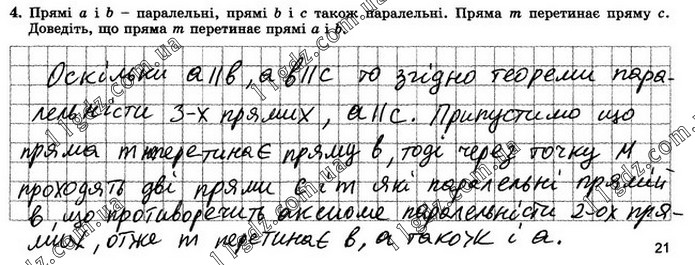 4. Прямі a і b – паралельні, прямі b і c також паралельні. Пряма m перетинає пряму c.
Доведіть, що пряма m перетинає прямі a і b.
Оскільки a∥b, а b∥c то згідно теореми пара-
лельністи 3-х прямих, a∥c. Припустимо що
пряма m перетинає пряму b, тоді через точку M
проходять дві прями c і m які паралельні прямій
b, що противоречить аксиоме паралельністи 2-ох пря-
мих, отже m перетинає b, а також і a.
21
11gdz.com.ua